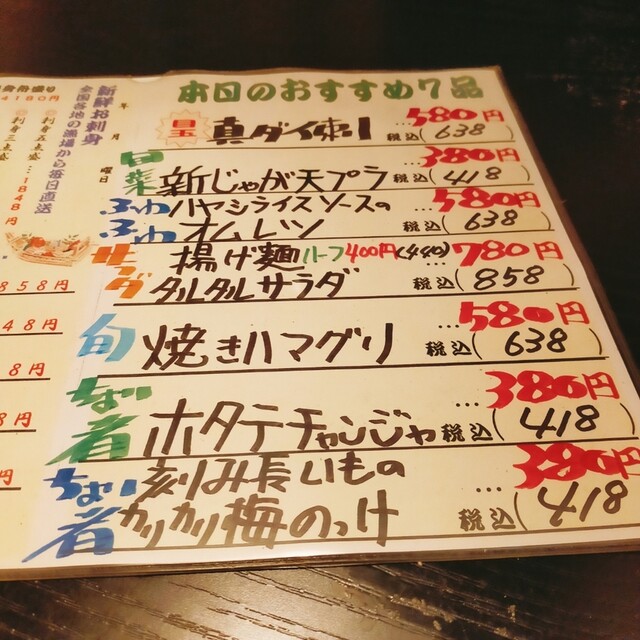 本日のおすすめ7品
目玉 真ダイ刺 …580円
税込(638)
旨菜 新じゃが天プラ …380円
税込(418)
ふわふわ ハヤシライスソースの …580円
オムレツ 税込(638)
サラダ 揚げ麺 ハーフ400円(440) …780円
タルタルサラダ 税込(858)
旬 焼きハマグリ …580円
税込(638)
ちょい肴 ホタテチャンジャ …380円
税込(418)
ちょい肴 刻み長いもの …380円
カリカリ梅のっけ 税込(418)
年 月 曜日
新鮮お刺身
全国各地の漁場から毎日直送
4180円
刺身五点盛…1848円
刺身三点盛
858円
48円
8円
8円
円